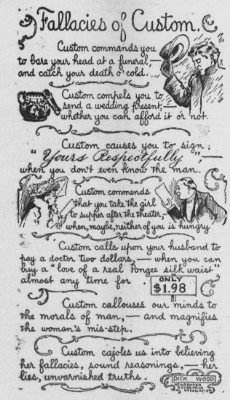 Fallacies of Custom.
Custom commands you
to bare your head at a funeral,—
and catch your death o' cold.
Custom compels you to
send a wedding present,—
whether you can afford it or not.
Custom causes you to sign;
"Yours Respectfully",—
when you don't even know the man.
Custom commands
that you take the girl
to supper after the theater,—
when, maybe, neither of you is hungry.
Custom calls upon your husband to
pay a doctor two dollars,— when you can
buy a "love of a real Pongee silk waist"
almost any time for
ONLY
$1.98
Custom callouses our minds to
the morals of man,— and magnifies
the woman's mis-step.
Custom cajoles us into believing
her fallacies, sound reasonings,— her
lies, unvarnished truths.
DICK WOOD